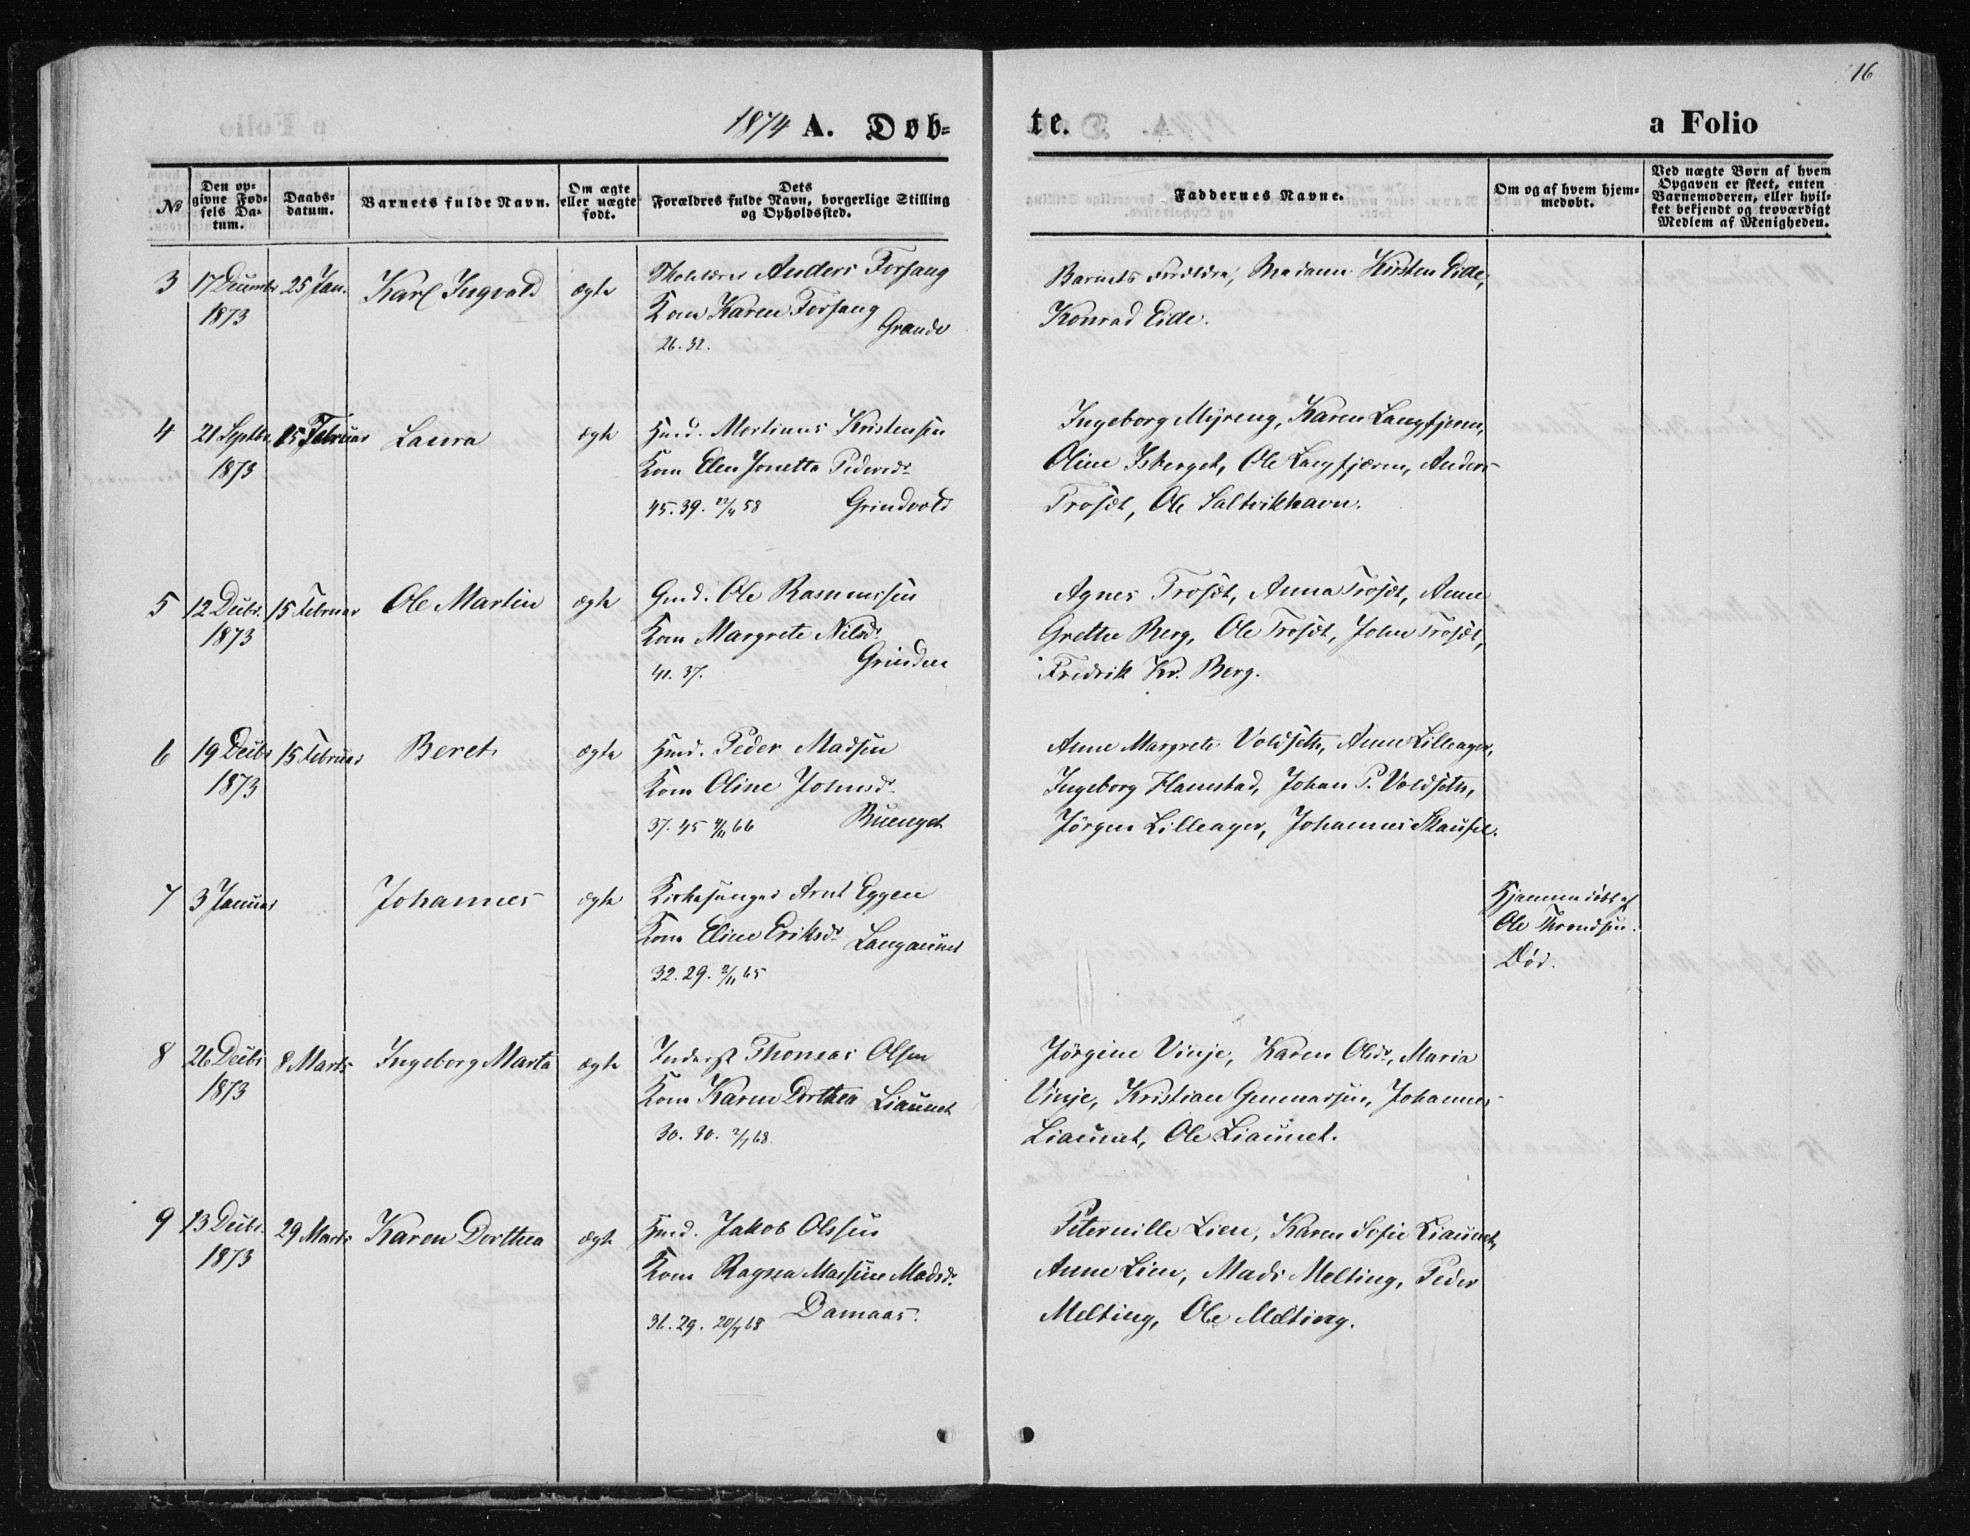 16
1874 A. Døb=
te.
a Folio
№
Den op=
givne Fød=
sels Da=
tum.
Daabs=
datum.
Barnets fulde Navn.
Om ægte
eller uægte
født.
Dets
Forældres fulde Navn, borgerlige Stilling
og Opholdssted.
Faddernes Navne.
Om og af hvem hjem=
medøbt.
Ved uægte Børn af hvem
Opgaven er skeet, enten
Barnemoderen, eller hvil=
ket bekjendt og troværdigt
Medlem af Menigheden.
3 17 Decembr 25 Jan. Karl Ingvald ægte Anders Forsang
1873 Kone Karen Forsang
Grande
26. 32.
Barnets Forældre, Madam Kirsten Eide,
Konrad Eide.
4 21 Septbr 15 Februar Laura ægte Hmd. Mortinus Kristensen
1873 Kone Elen Jonetta Pedersdr
45. 39. 58 Grindvold
Ingeborg Myreng, Karen Langfjæren,
Oline Isberget, Ole Langfjæren, Anders
Trøset, Ole Saltvikhavn.
5 12 Decbr. 15 Februar Ole Martin ægte Gmd. Ole Rasmussen
1873 Kone Margrete Nilsdr
41. 37. Grinden
Agnes Trøset, Anna Trøset, Anne
Grethe Berg, Ole Trøset, John Trøset,
Fredrik Kr. Berg.
6 19 Decbr 15 Februar Beret ægte Hmd. Peder Madsen
1873 Kone Oline Johnsdr
37. 45 66 Buenget
Anne Margrete Voldseth, Anne Lilleager,
Ingeborg Hamstad, Johan P. Voldseth,
Jørgen Lilleager, Johannes Skausel.
7 3 Januar Johannes ægte Kirkesanger Arnt Eggen
Kone Eline Eriksdr Langaunet
32. 29. 65
Hjemmedøbt af
Ole Throndsen.
Død.
8 26 Decbr 8 Marts Ingeborg Marta ægte Inderst Thomas Olsen
1873 Kone Karen Dorthea Liaunet
30. 30. 2/7 68
Jørgine Vinje, Karen Olsdr, Maria
Vinje, Kristian Gunnarsen, Johannes
Liaunet, Ole Liaunet.
9 13 Decbr. 29 Marts Karen Dorthea ægte Hmd. Jakob Olssen
1873 Kone Ragna Massine Madsdr.
36. 29. 20/7 68 Damaas.
Peternille Lien, Karen Sofie Liaunet,
Anne Lien, Mads Melting, Peder
Melting, Ole Melting.